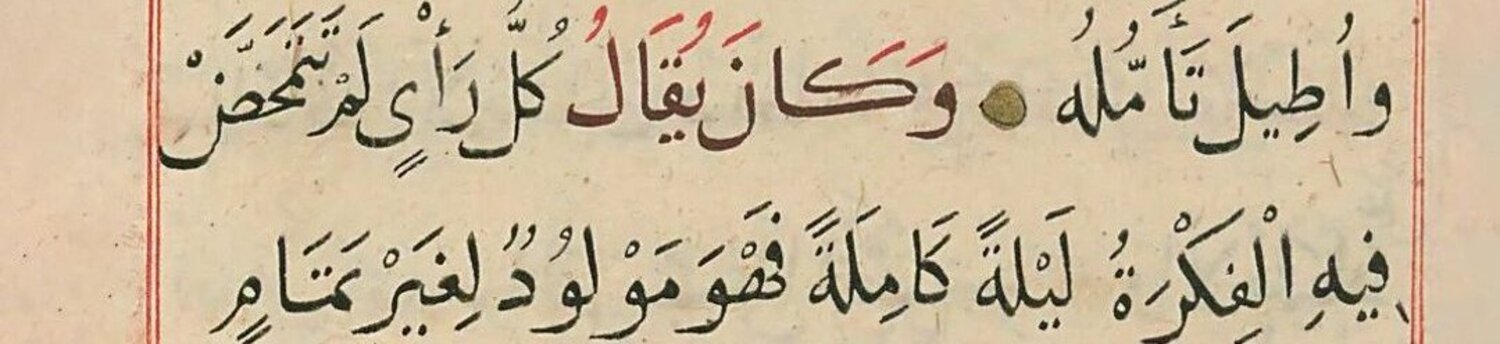 وَاُطِيلَ تَأَمُّلَهُ وَكَانَ يُقَالُ كُلُّ رَأْيٍ لَمْ تَتَمَخَّضْ
فِيهِ الْفِكْرَةُ لَيْلَةً كَامِلَةً فَهْوَ مَوْلُودٌ لِغَيْرِ تَمَامٍ